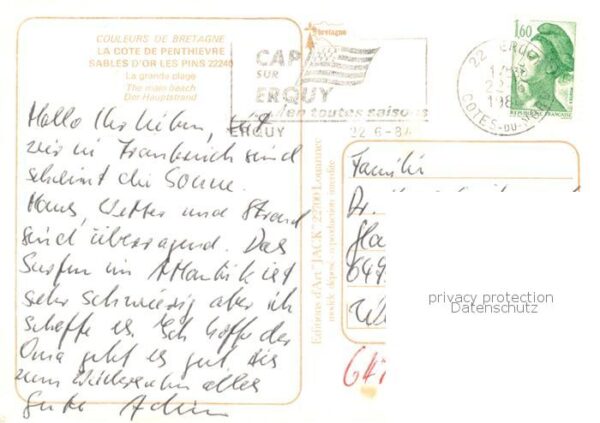 COULEURS DE BRETAGNE
LA COTE DE PENTHIEVRE
SABLES D'OR LES PINS 22240
La grande plage
The main beach
Der Hauptstrand
bretagne
CAP
SUR
ERQUY
en toutes saisons
ERQUY 22-6-84
1,60
REPUBLIQUE FRANÇAISE
22 ERQUY
COTES-DU-NORD
Hallo Ihr Lieben, seit
wir in Frankreich sind
scheint die Sonne.
Haus, Wetter und Strand
sind überragend. Das
Surfen im Atlantik ist
sehr schwierig aber ich
schaffe es. Ich hoffe der
Oma geht es gut bis
zum Wiedersehen alles
Gute Achim
Editions d'Art "JACK" 22700 Louannec
modèle déposé - reproduction interdite
Familie
Dr.
649
privacy protection
Datenschutz